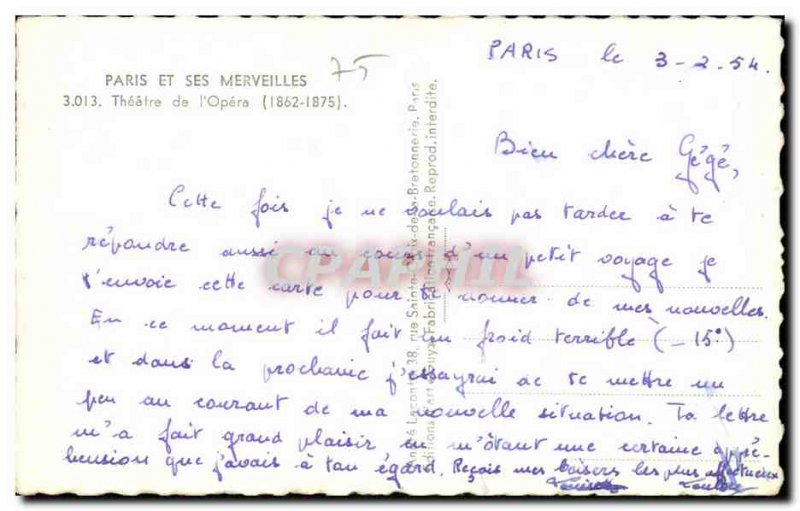 PARIS le 3-2.54.
75
PARIS ET SES MERVEILLES
3.013. Théâtre de l'Opéra (1862-1875).
Bien chère Gégé,
Cette fois je ne voulais pas tarder à te
répondre aussi au cours d'un petit voyage je
t'envoie cette carte pour te donner de mes nouvelles.
En ce moment il fait un froid terrible (-15°)
et dans la prochaine j'essayrai de te mettre un
peu au courant de ma nouvelle situation. Ta lettre
m'a fait grand plaisir en m'ôtant une certaine appé-
hension que j'avais à ton égard. Reçois mes baisers les plus affectueux
38, rue Sainte-Croix-de-la-Bretonnerie, Paris
Fabrication française. Reprod. interdite.
CPAPHIL